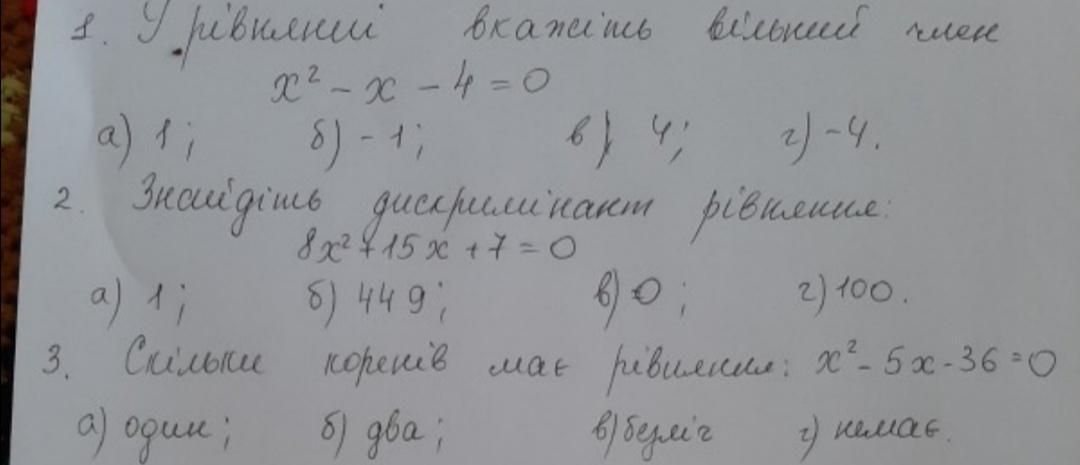 1. У рівнянні вкажіть вільний член
x² - x - 4 = 0
а) 1; б) -1; в) 4; г) -4.
2. Знайдіть дискримінант рівняння:
8x² + 15x + 7 = 0
а) 1; б) 449; в) 0; г) 100.
3. Скільки коренів має рівняння: x² - 5x - 36 = 0
а) один; б) два; в) безліч г) немає.